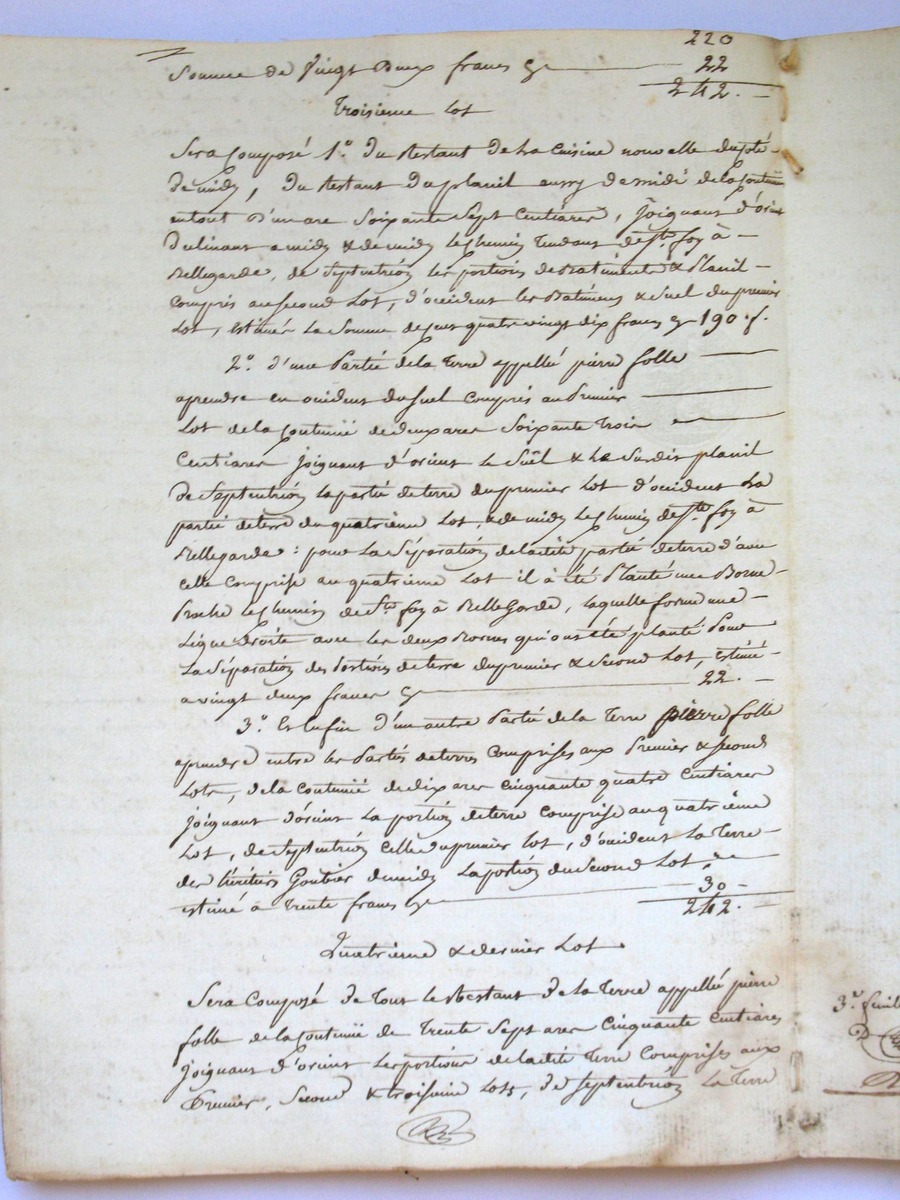 220
Somme de vingt deux francs cy 22
242. —
Troisieme lot
Sera composé 1.° du Restant de La cuisine nouvelle du coté
de midy, du Restant du planil aussy de midi de la contenue
en tout d'un are Soixante Sept centiares, joignant d'orient
a midy & de midy le chemin tendant de Ste foy à
Bellegarde, de septentrion les portions de Batiments & Planil
compris au second Lot, d'occident les Batimens & Suel du premier
Lot, estimés La Somme de cent quatre vingt dix francs cy 190.f.
2.° d'une Partie de la Terre appellé pierre folle
aprendre en occident du Suel compris au Premier
Lot de la contenue de deux ares Soixante Trois
Centiares joignant d'orient Le Suël & Le Susdit planil
de Septentrion la partie de terre du premier Lot d'occident La
partie de terre du quatrieme Lot, & de midy Le chemin de Ste foy à
Bellegarde : pour La Séparation de ladite partie de terre d'avec
celle Comprise au quatrieme Lot il à été Planté une Borne
Proche le chemin de Ste foy à BelleGarde, laquelle forme une
Ligne droite avec les deux Bornes qui ont été planté Pour
La Séparation des Portions de terre du premier & Second Lot, estimé
a vingt deux francs cy 22. —
3.° Et Enfin d'un autre Partie de la Terre pierre folle
aprendre entre les Parties de terres Comprises aux Premier & second
Lots, de la contenue de dix ares cinquante quatre centiares
joignant d'orient La portion de terre comprise au quatrième
Lot, de Septentrion celle du premier Lot, d'occident La Terre
des héritiers Goutier de midy La portion du Second Lot
estimé à Trente francs cy 30 —
242. —
Quatrieme & dernier Lot
Sera Composé de Tout le Restant de La Terre appellé pierre
folle de la Contenue de Trente Sept ares Cinquante centiares
joignant d'orient Les portions de ladite Terre Comprises aux
Premier, Second & troisieme Lots, de septentrion La Terre
3.e feuille